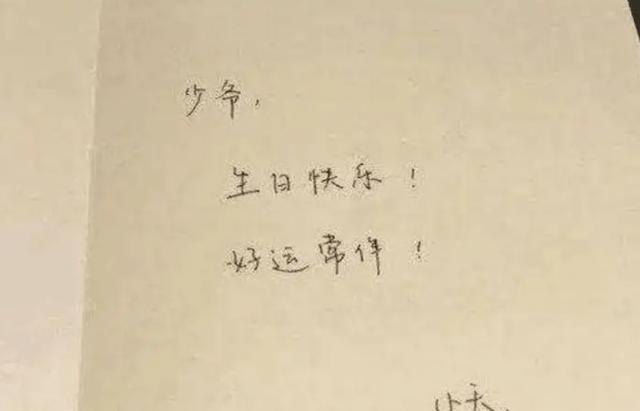 少爷，
生日快乐！
好运常伴！